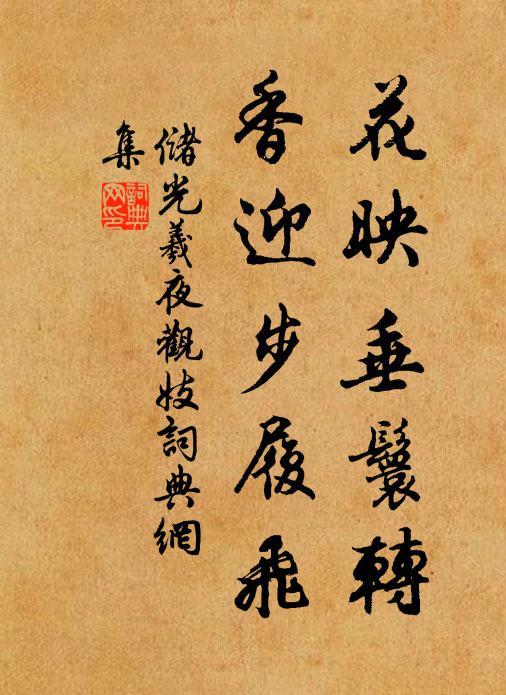 花映垂鬟轉
香迎步履飛
儲光羲夜觀妓詞典網
集
詞典
网印